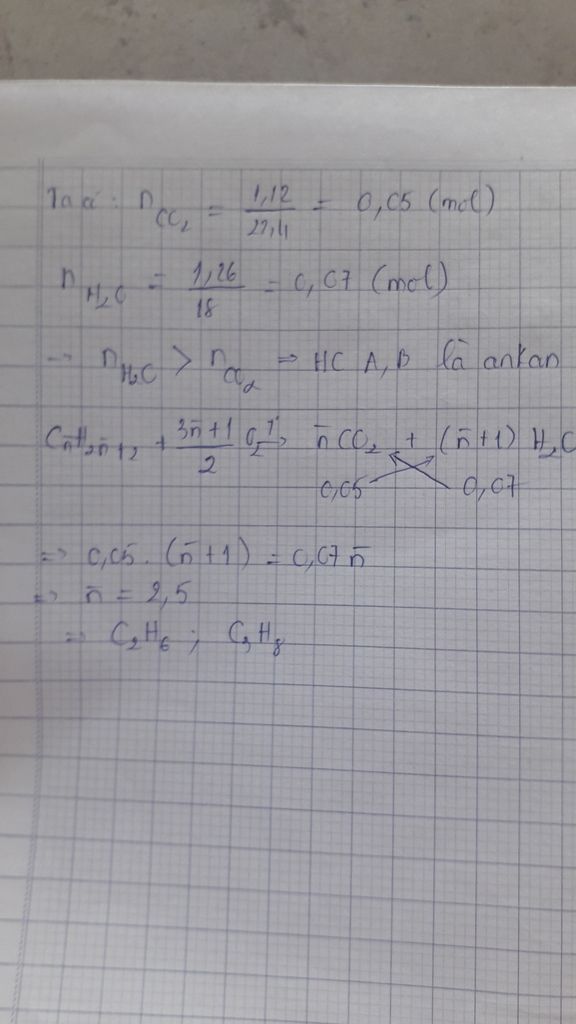 Ta có : n CO₂ = 1,12/22,4 = 0,05 (mol)
n H₂O = 1,26/18 = 0,07 (mol)
→ n H₂O > n CO₂ ⇒ HC A, B là ankan
Cn̄H2n̄+2 + (3n̄+1)/2 O₂ –t°→ n̄ CO₂ + (n̄+1) H₂O
0,05 0,07
=> 0,05 . (n̄ +1) = 0,07 n̄
=> n̄ = 2,5
=> C₂H₆ ; C₃H₈